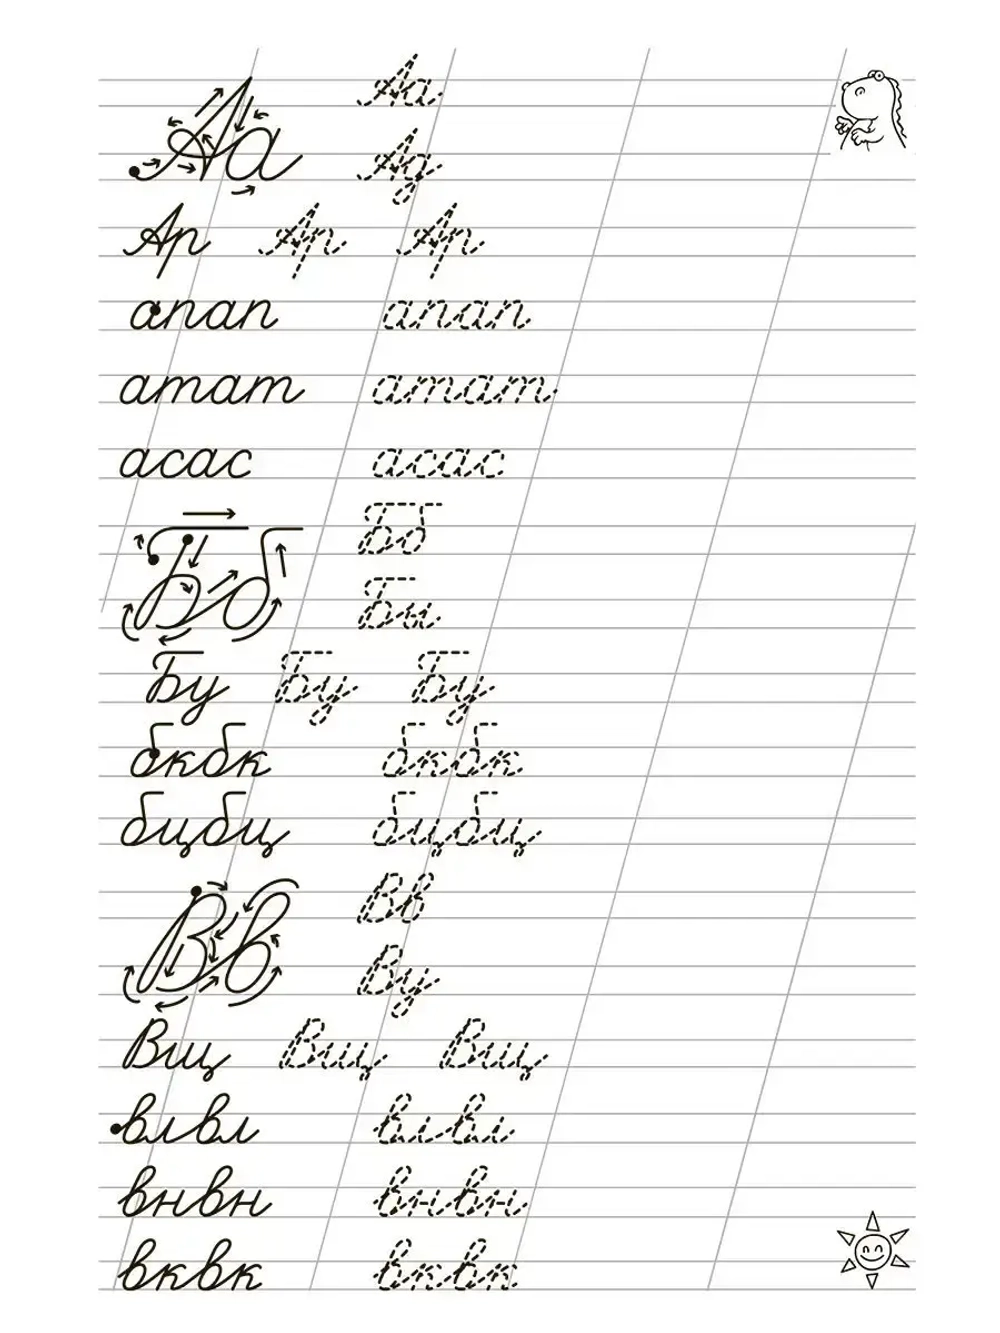 Аа Аа
Ад
Ар Ар Ар
апап апап
атат атат
асас асас
Бб Бб
Бы
Бу Бу Бу
бкбк бкбк
бцбц бцбц
Вв Вв
Ву
Вщ Вщ Вщ
влвл влвл
внвн внвн
вквк вквк